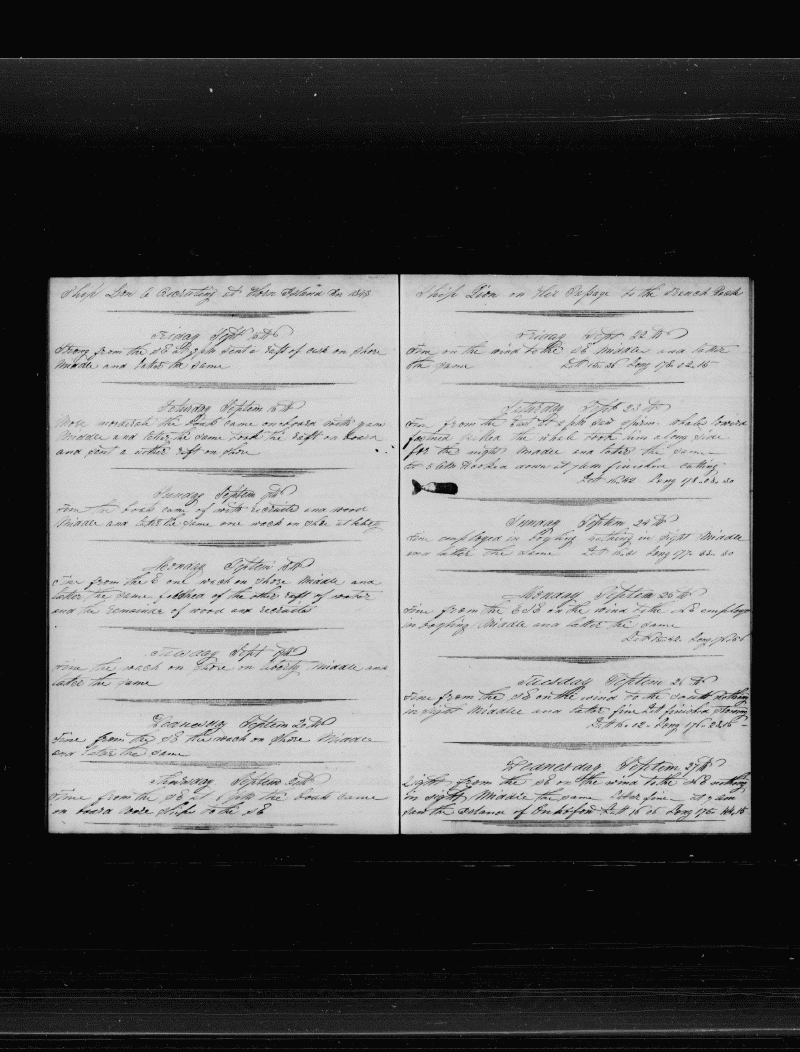 Ship Lion & Recruiting at Horn Island 1843
Friday Sept 15th
Strong from the SE at 3 pm sent a raft of cask on shore
Middle and latter the same
Saturday Septem 16th
More moderate the boats came onboard with yam
Middle and latter the same took the raft on board
and sent a nother raft on shore
Sunday Septem 17th
Fine the boats came of with recruits and wood
Middle and latter the same one wach on shore at liberty
Monday Septem 18th
Fine from the E one wach on shore Middle and
latter the same fetched of the other raft of water
and the remainder of wood and recruits
Tuesday Sept 19th
Fine the wach on shore on liberty Middle and
latter the same
Wednesday Septem 20th
Fine from the SE the wach on shore Middle
and latter the same
Thursday Septem 21th
Fine from the SE at 5 pm the boats came
on board wore ship to the SE
Ship Lion on Her Passage to the French Rock
Friday Sept 22th
Fine on the wind to the SE Middle and latter
the same Latt 15.36 Long 178.12.15
Saturday Sept 23th
Fine from the East at 1 pm saw sperm whales lowerd
fastned killed the whale took him along side
for the night Middle and latter the same
at 5 AM Hooked down at 9 am finished cutting
Latt 16.02 Long 178.03.30
Sunday Septem 24th
Fine employed in boyling nothing in sight Middle
and latter the same Latt Long 177
Monday Septem 25th
Fine from the ESE on the wind to the SE employed
in boyling Middle and latter the same
Latt Long
Tuesday Septem 26th
Fine from the SE on the wind to the south nothing
in sight Middle and latter fine Let finished stowing
Latt 16.12 Long 176
Wednesday Septem 27th
Light from the SE on the wind to the SE nothing
in sight Middle the same latter fine at 7 am
saw the Island of Latt 16 Long 176